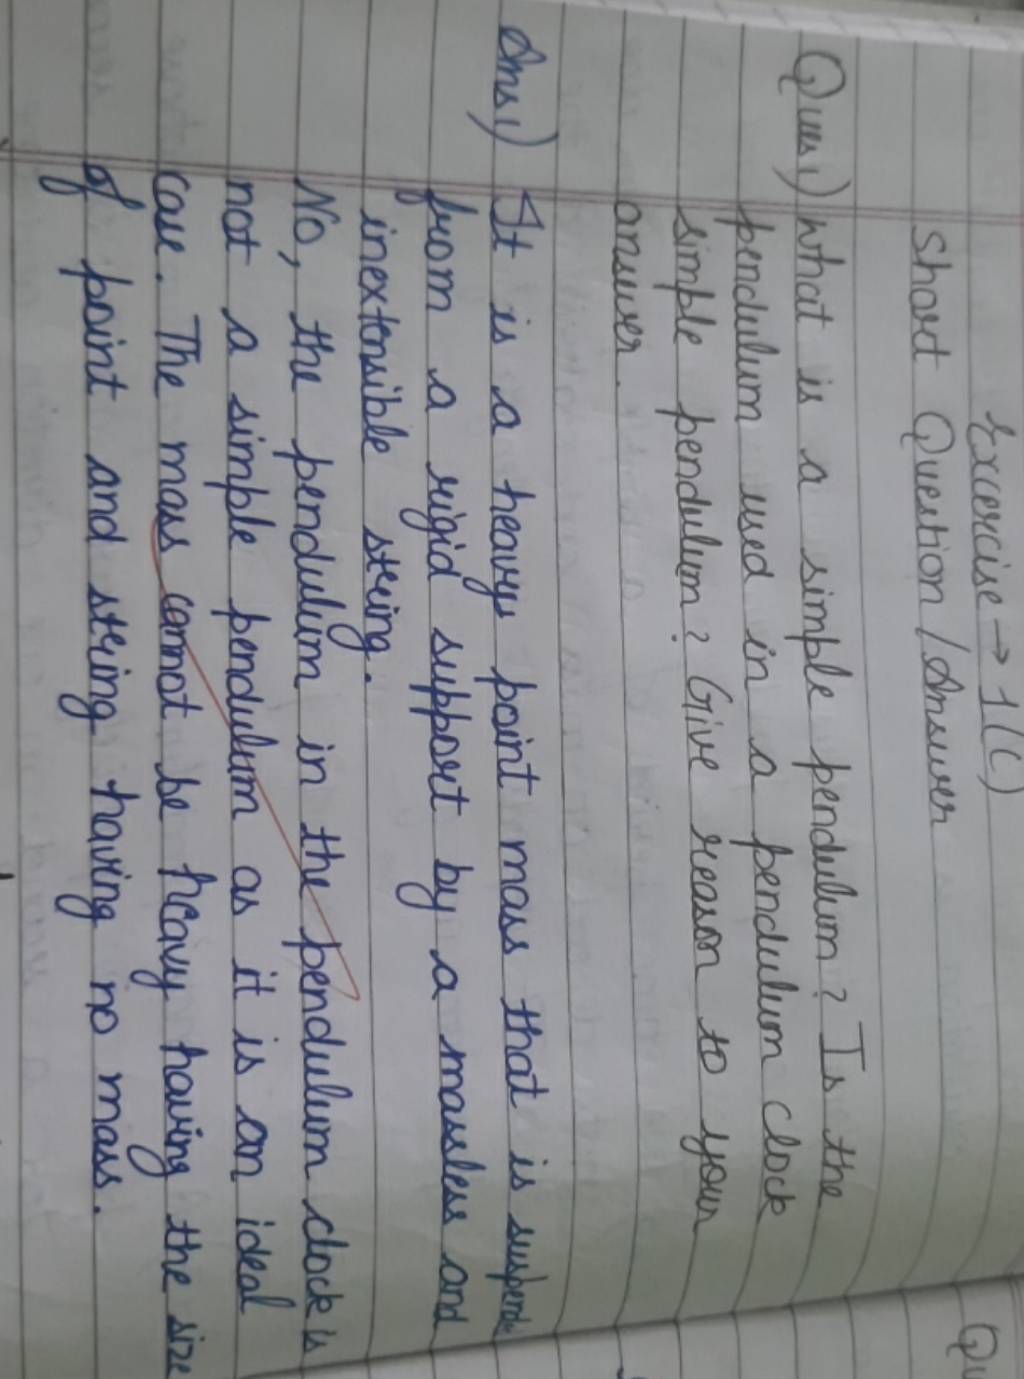 Excercise → 1(C)
Short Question / Answer
Ques 1) What is a simple pendulum? Is the
pendulum used in a pendulum clock
simple pendulum? Give reason to your
answer.
Ans 1) It is a heavy point mass that is suspende
from a rigid support by a massless and
inextensible string.
No, the pendulum in the pendulum clock is
not a simple pendulum as it is an ideal
case. The mass cannot be heavy having the size
of point and string having no mass.
Qu